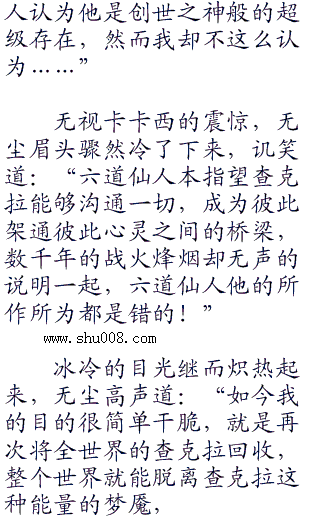 人认为他是创世之神般的超
级存在，然而我却不这么认
为……”
无视卡卡西的震惊，无
尘眉头骤然冷了下来，讥笑
道：“六道仙人本指望查克
拉能够沟通一切，成为彼此
架通彼此心灵之间的桥梁，
数千年的战火烽烟却无声的
说明一起，六道仙人他的所
作所为都是错的！”
www.shu008.com
冰冷的目光继而炽热起
来，无尘高声道：“如今我
的目的很简单干脆，就是再
次将全世界的查克拉回收，
整个世界就能脱离查克拉这
种能量的梦魇，